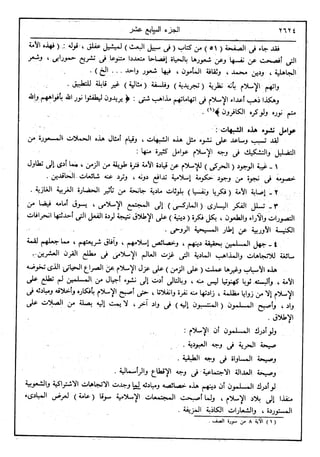 ٢٦٢٤ الجزء السابع عشر
فقد جاء فى الصفحة (٥١) من كتاب ( فى سبيل البعث ) لميشيل عفلق ، قوله : ( فهذه الأمة
التى أفصحت عن نفسها وعن شعورها بالحياة إفصاحا متعددا متنوعا فى تشريع حمورابى ، وشعر
الجاهلية ، ودين محمد ، وثقافة المأمون ، فيها شعور واحد ... الخ ) .
واتهم الإسلام بأنه نظرية ( تجريدية ) وفلسفة ( مثالية ) غير قابلة للتطبيق .
وهكذا ذهب أعداء الإسلام فى اتهاماتهم مذاهب شتى : ﴿ يريدون ليطفئوا نور الله بأفواههم والله
متم نوره ولو كره الكافرون ﴾(١) .
عوامل نشوء هذه الشبهات :
لقد تسبب وساعد على نشوء مثل هذه الشبهات ، وقيام أمثال هذه الحملات المسعورة من
التضليل والتشكيك فى وجه الإسلام عوامل كثيرة منها :
١ - غيبة الوجود ( الحركى ) للإسلام عن قيادة الأمة فترة طويلة من الزمن ، مما أدى إلى تطاول
خصومه فى نجوة من وجود حكومة إسلامية تدافع دونه ، وترد عنه شائعات الحاقدين .
٢ - إصابة الأمة ( فكريا ونفسيا ) بلوثات مادية جانحة من تأثير الحضارة الغربية الغازية .
٣ - تسلل الفكر اليسارى ( الماركسى ) إلى المجتمع الإسلامى ، يسوق أمامه فيضا من
التصورات والآراء والطعون ، بكل فكرة ( دينية ) على الإطلاق نتيجة لردة الفعل التى أحدثتها انحرافات
الكنيسة الأوربية عن إطار المسيحية الروحى .
٤ - جهل المسلمين بحقيقة دينهم ، وخصائص إسلامهم ، وآفاق شريعتهم ، مما جعلهم لقمة
سائغة للاتجاهات والمذاهب المادية التى غزت العالم الإسلامى فى مطلع القرن العشرين .
هذه الأسباب وغيرها عملت ( على الزمن ) على عزل الإسلام عن الصراع الحياتى الذى تخوضه
الأمة ، وألبسته ثوبا كهنوتيا ليس منه ، وبالتالى أدت إلى نشوء أجيال من المسلمين لم تطلع على
الإسلام إلا من زوايا مظلمة ، زادتها منه نفرة وانفلاتا ، حتى أصبح الإسلام بأفكاره وأخلاقه ومبادئه فى
واد ، وأصبح المسلمون ( المنتسبون إليه ) فى واد آخر ، لا يمت إليه بصلة من الصلات على
الإطلاق .
ولو أدرك المسلمون أن الإسلام :
صيحة الحرية فى وجه العبودية .
وصيحة المساواة فى وجه الطبقية .
وصيحة العدالة الاجتماعية فى وجه الإقطاع والرأسمالية .
لو أدرك المسلمون أن دينهم هذه خصائصه ومبادئه لما وجدت الاتجاهات الاشتراكية والشعوبية
منفذا إلى بلاد الإسلام ، ولما أصبحت المجتمعات الإسلامية سوقا ( عامة ) لعرض المبادىء
المستوردة ، والشعارات الكاذبة المزيفة .
(١) الآية ٨ من سورة الصف .